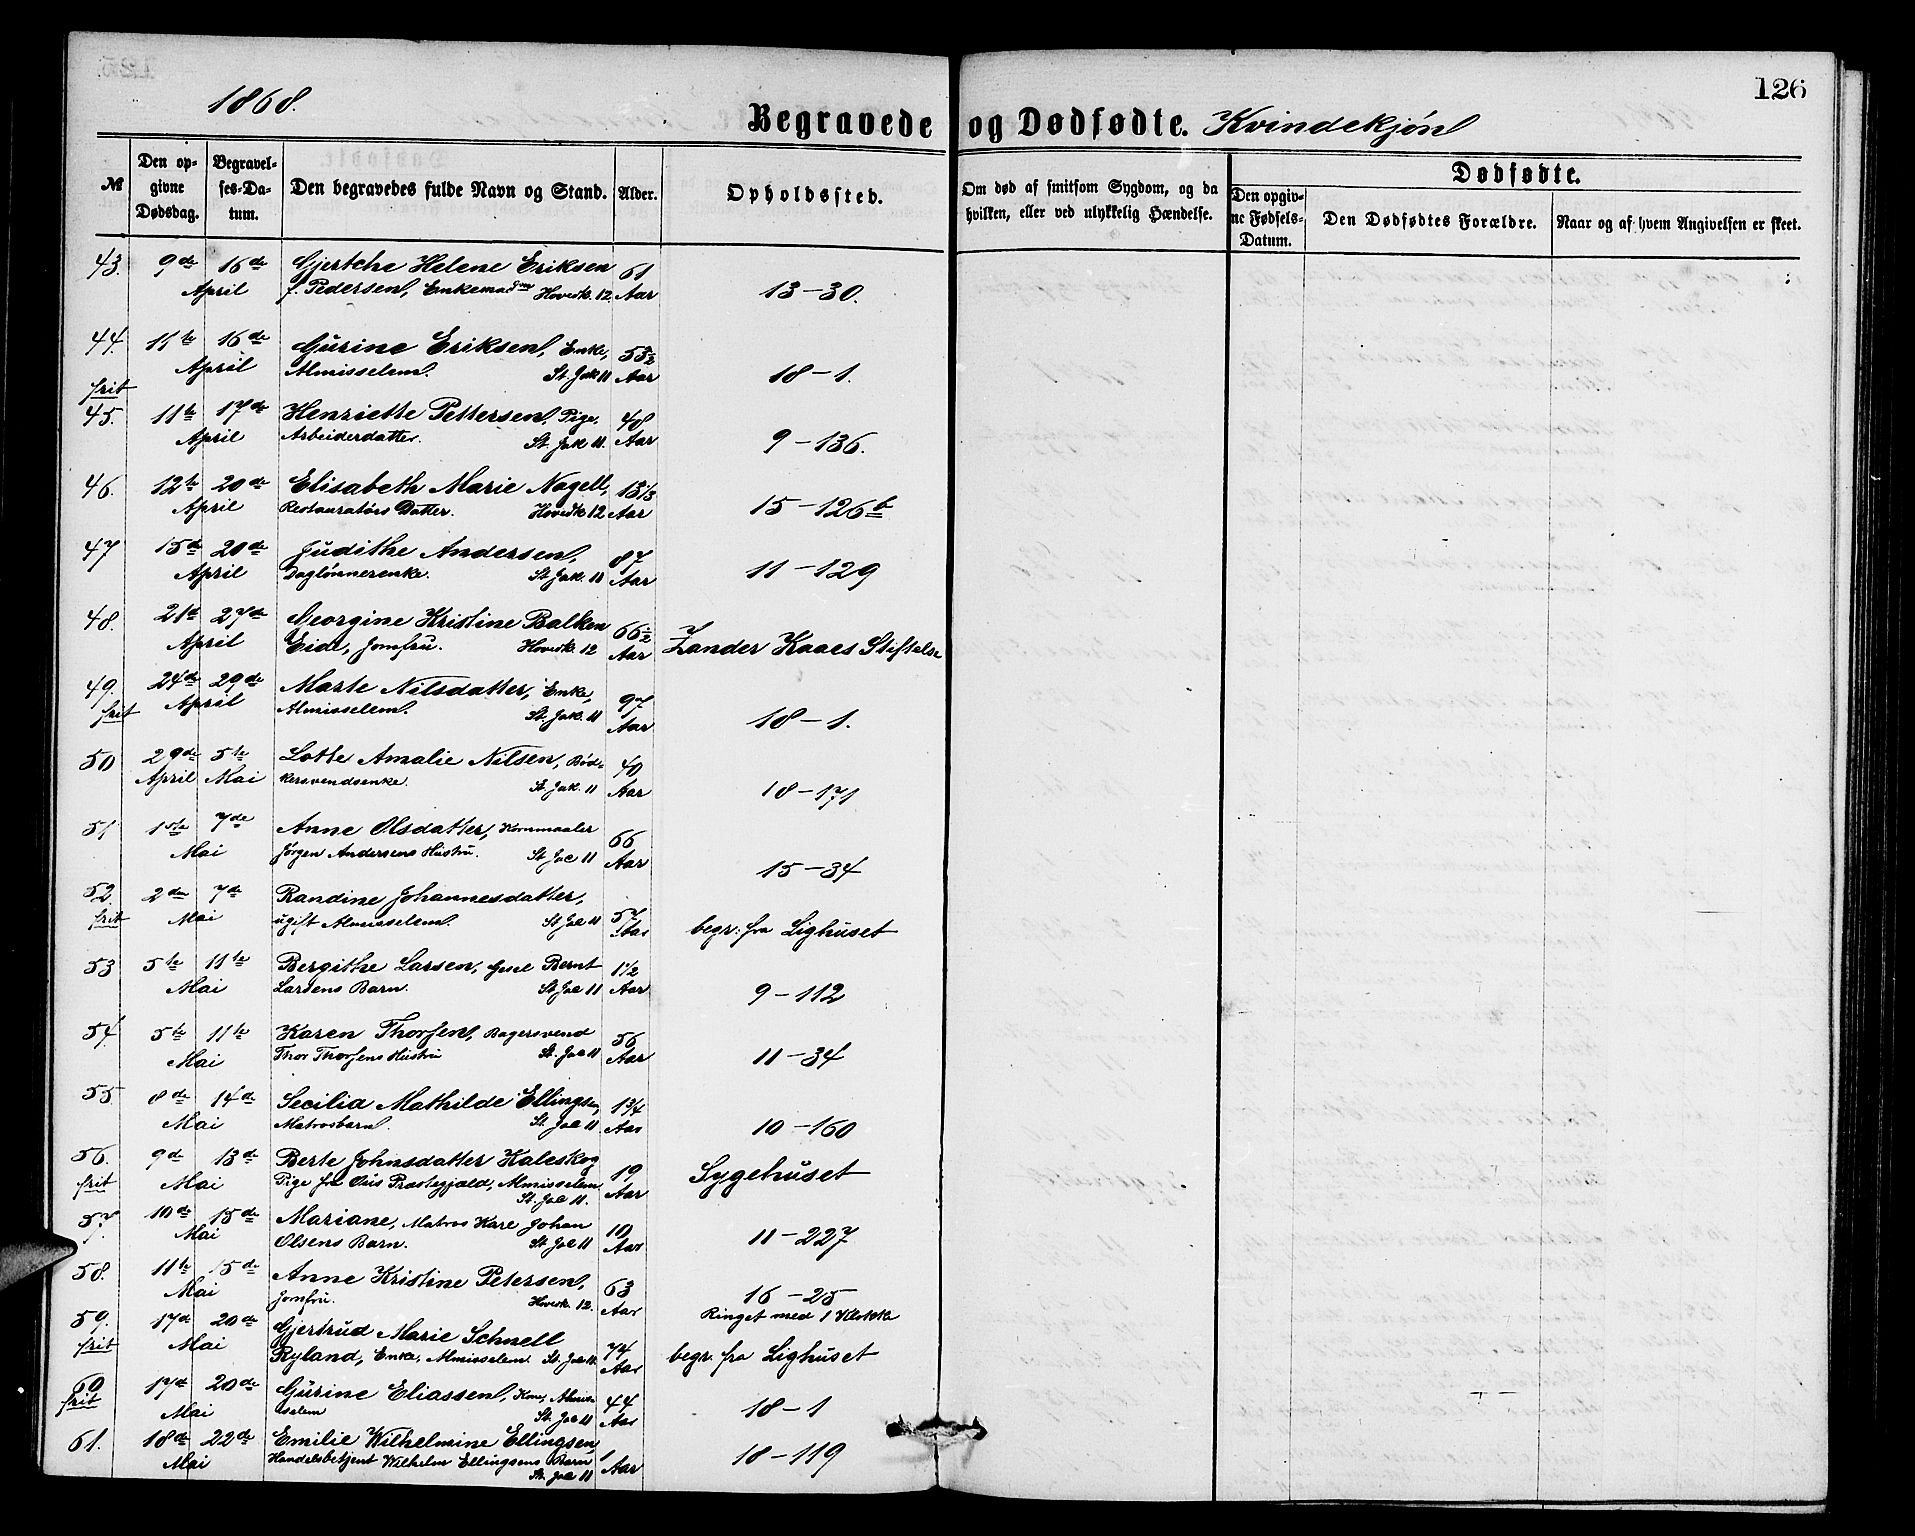 1868.
126
Begravede og Dødfødte. Kvindekjøn
№
Den opgivne Dødsdag.
Begravelses-Datum.
Den begravedes fulde Navn og Stand.
Alder.
Opholdssted.
Om død af smitsom Sygdom, og da hvilken, eller ved ulykkelig Hændelse.
Dødfødte.
Den opgivne Fødsels-Datum.
Den Dødfødtes Forældre.
Naar og af hvem Angivelsen er skeet.
43. 9de 16de Gjertche Helene Eriksen 61
April f. Pedersen, Enkemadm Hovedk. 12 Aar 13-30.
44. 11te 16de Gurine Eriksen, Enke, 55½
frit April Almisselem. St. Jak 11 Aar 18-1.
45. 11te 17de Henriette Pettersen, Pige, 48
April Arbeiderdatter. St. Jak 11. Aar 9-136.
46. 12te 20de Elisabeth Marie Nagell, 13 1/3
April Restauratørs Datter. Hovedk 12 Aar 15-126b
47 15de 20de Judithe Andersen, 87
April Daglønnerenke. St. Jak. 11 Aar 11-129
48. 21de 27de Georgine Kristine Balken 66½
April Eide, Jomfru. Hovedk. 12 Aar Zander Kaaes Stiftelse
49. 24de 29de Marte Nilsdatter, Enke, 97
frit April Almisselem. St. Jak. 11 Aar 18-1.
50 29de 5te Lotte Amalie Nilsen, Bød- 40
April Mai kersvendsenke. St. Jak. 11 Aar 18-171
51 1ste 7de Anne Olsdatter, Kornmaaler 66
Mai Jørgen Andersens Hustru. St. Jac 11 Aar 15-34
52. 2den 7de Randine Johannesdatter, 57
frit Mai ugift Almisselem. St Jac 11 Aar begr. fra Lighuset
53 5te 11te Bergithe Larsen, Gesel Bernt 1½
Mai Larsens Barn. St Jac 11 Aar 9-112
54. 5te 11te Karen Thorsen, Bagersvend 56
Mai Thor Thorsens Hustru St. Jac 11 Aar 11-34
55 8de 14de Secilia Mathilde Ellingsen, 1¾
Mai Matrosbarn. St. Jac 11 Aar 10-160
56. 9de 13de Berte Johnsdatter Kaleskog 19
frit Mai Pige fra Præstegjæld, Almisselem, Aar Sygehuset
St. Jac 11.
57. 10de 15de Mariane, Matros Kare Johan 10
Mai Olsens Barn. St. Jac 11 Aar 11-227
58. 11te 15de Anne Kristine Petersen, 63
Mai Jomfru. Hovedk. 12. Aar 16-25
Ringet med 1 Klokke
59. 17de 20de Gjertrud Marie Schnell 74
frit Mai Ryland, Enke, Almisselem. St. Jac 11. Aar begr. fra Lighuset
60 17de 20de Gurine Eliassen, Kone, Almis- 44
frit Mai selem St. Jac 11 Aar 18-1
61. 18de 22de Emilie Wilhelmine Ellingsen, 1
Mai Handelsbetjent Wilhelm Ellingsens Barn Aar 18-119
St. Jac 11